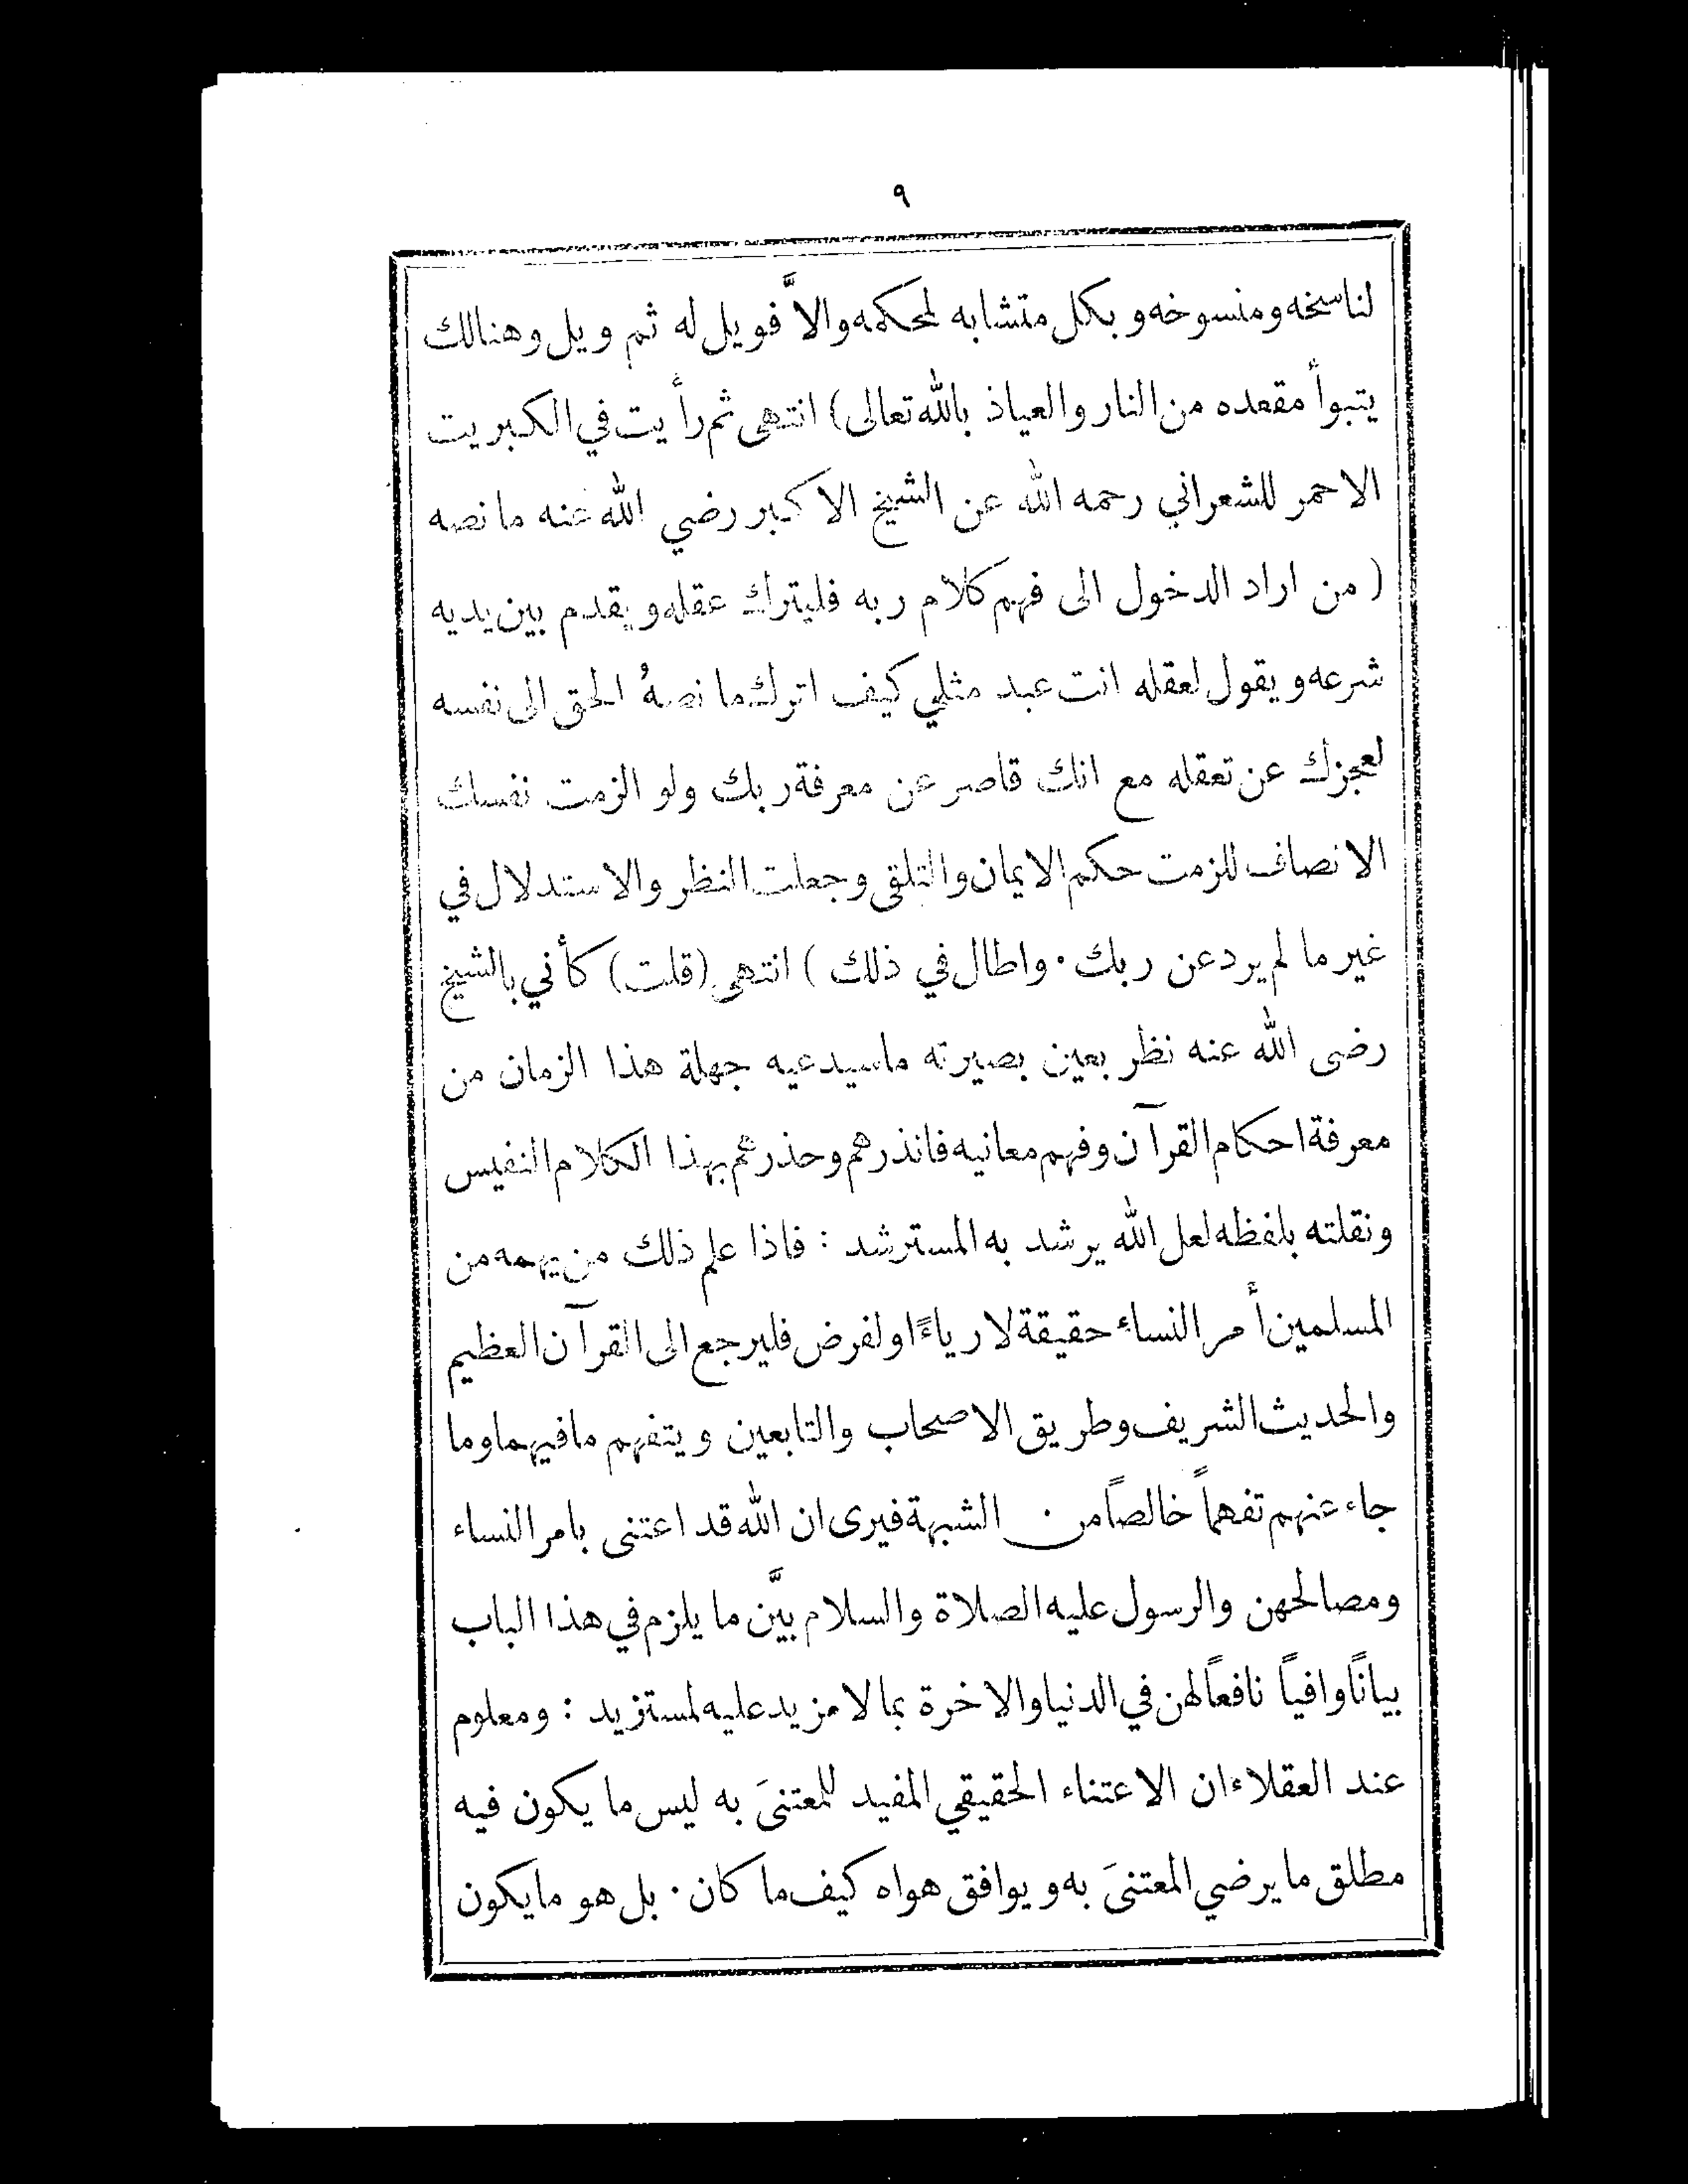 ٩
لناسخه ومنسوخه وبكل متشابه لمحكمه والاَّ فويل له ثم ويل وهنالك
يتبوأ مقعده من النار والعياذ بالله تعالى) انتهى ثم رأيت في الكبريت
الاحمر للشعراني رحمه الله عن الشيخ الاكبر رضي الله عنه ما نصه
( من اراد الدخول الى فهم كلام ربه فليترك عقله ويقدم بين يديه
شرعه ويقول لعقله انت عبد مثلي كيف اترك ما نصهُ الحق الى نفسه
لعجزك عن تعقله مع انك قاصر عن معرفة ربك ولو الزمت نفسك
الانصاف للزمت حكم الايمان والتلقي وجعلت النظر والاستدلال في
غير ما لم يرد عن ربك ٠ واطال في ذلك ) انتهى (قلت) كأني بالشيخ
رضى الله عنه نظر بعين بصيرته ما سيدعيه جهلة هذا الزمان من
معرفة احكام القرآن وفهم معانيه فانذرهم وحذرهم بهذا الكلام النفيس
ونقلته بلفظه لعل الله يرشد به المسترشد : فاذا علم ذلك من يهمه من
المسلمين أمر النساء حقيقة لا رياءً او لغرض فليرجع الى القرآن العظيم
والحديث الشريف وطريق الاصحاب والتابعين ويتفهم ما فيهما وما
جاء عنهم تفهماً خالصاً من الشبهة فيرى ان الله قد اعتنى بامر النساء
ومصالحهن والرسول عليه الصلاة والسلام بيَّن ما يلزم في هذا الباب
بياناً وافياً نافعاً لهن في الدنيا والاخرة بما لا مزيد عليه لمستزيد : ومعلوم
عند العقلاء ان الاعتناء الحقيقي المفيد للمعتنىَ به ليس ما يكون فيه
مطلق ما يرضي المعتنىَ به ويوافق هواه كيف ما كان ٠ بل هو ما يكون